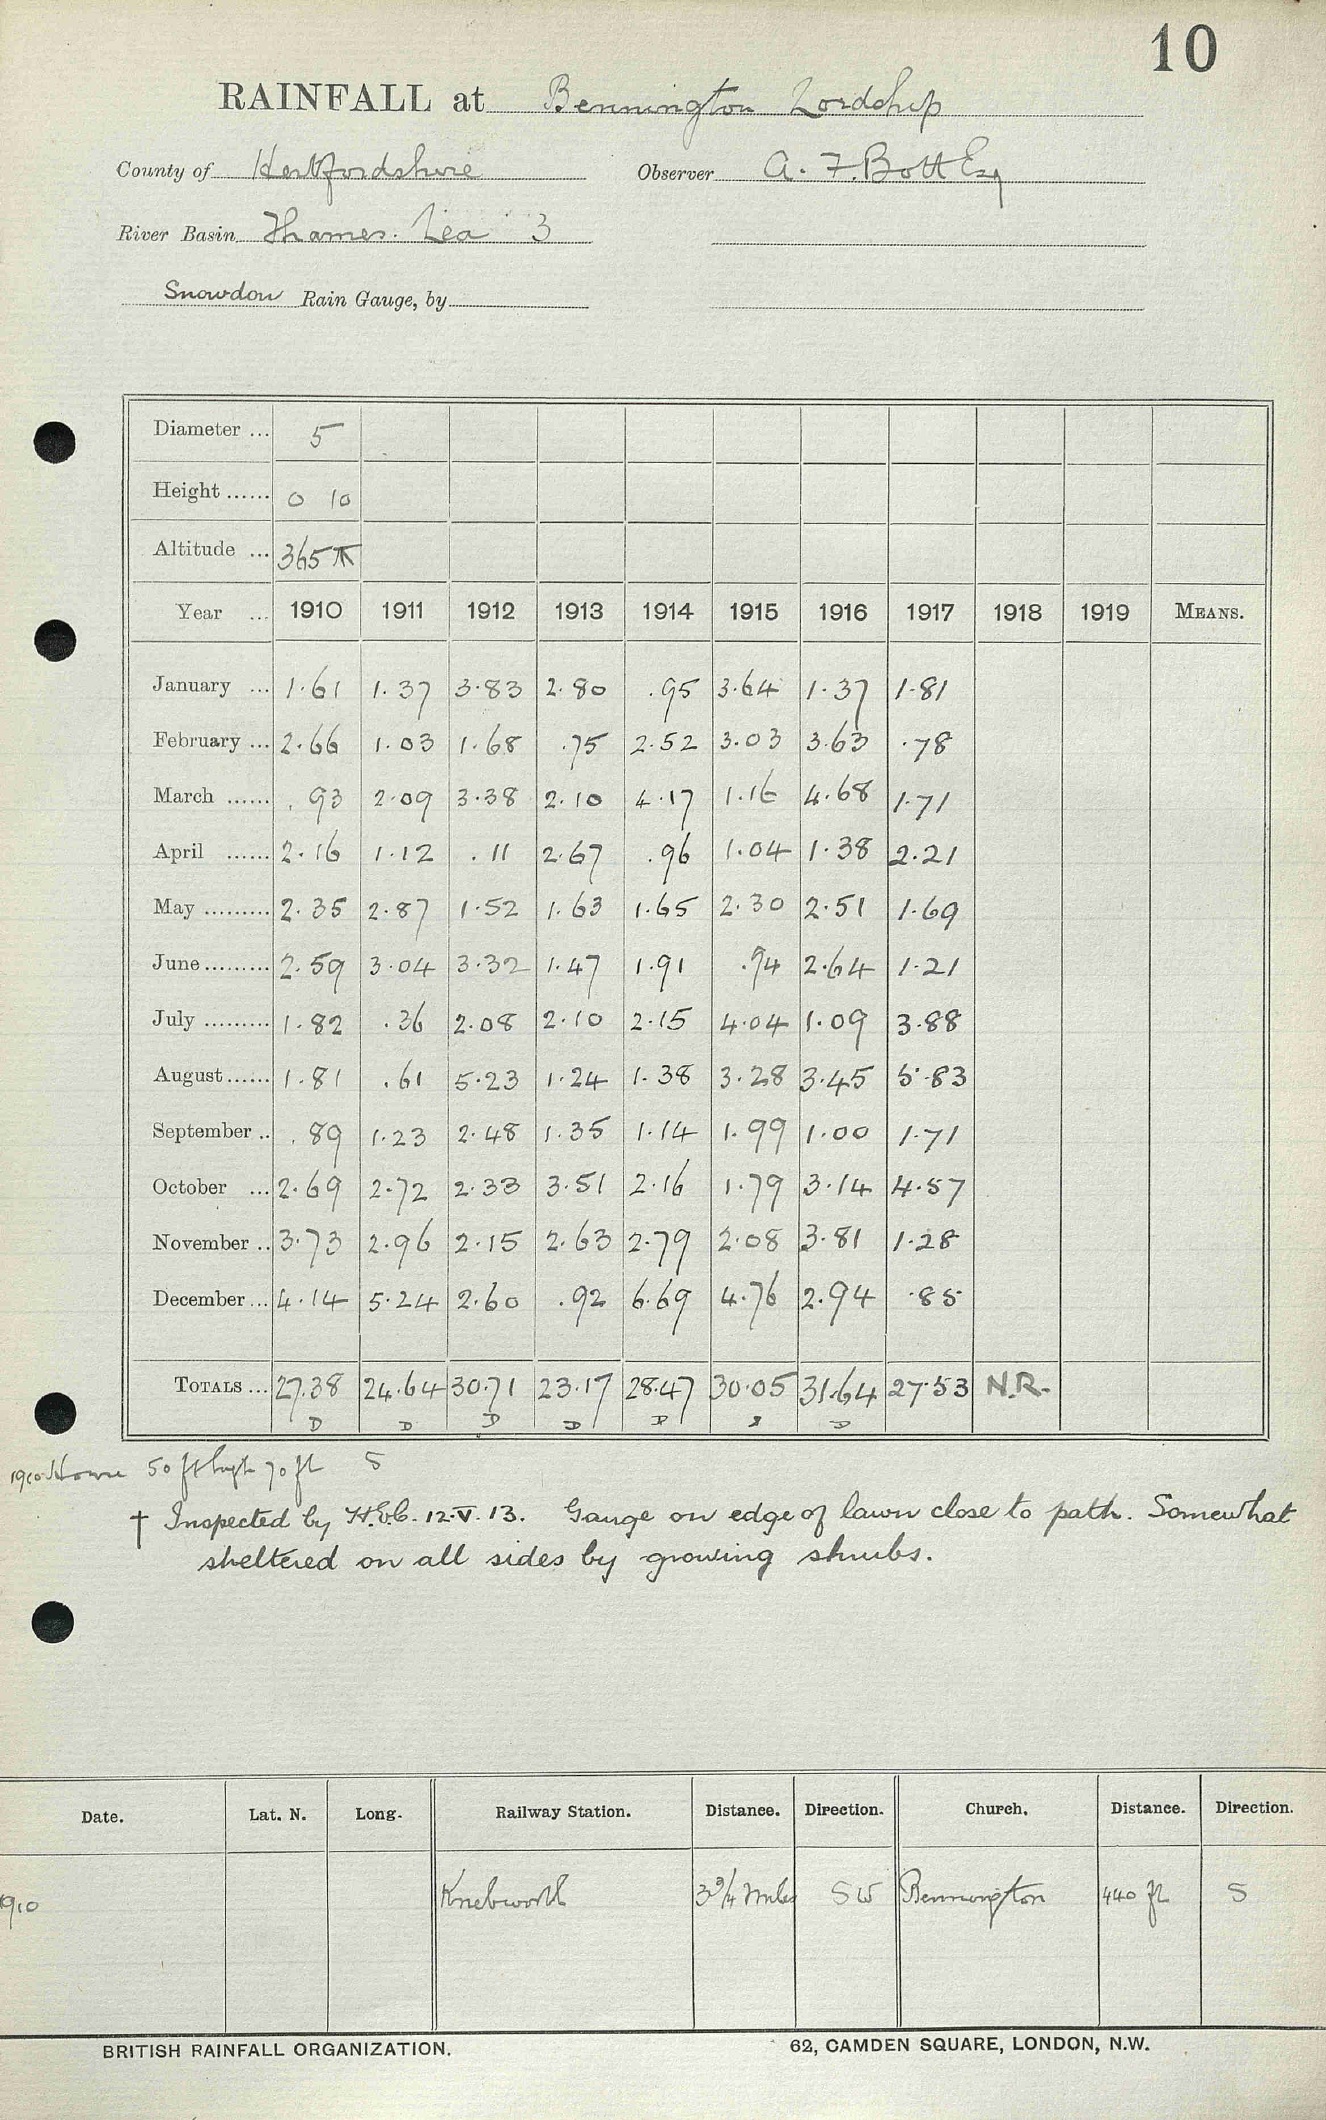 10
RAINFALL at Bennington Lordship
County of Hertfordshire Observer A. F. Bott Esq
River Basin Thames. Lea 3
Snowdon Rain Gauge, by
Diameter ... 5
Height ...... 0 10
Altitude ... 365
Year ... 1910 1911 1912 1913 1914 1915 1916 1917 1918 1919 MEANS.
January ... 1.61 1.37 3.83 2.80 .95 3.64 1.37 1.81
February ... 2.66 1.03 1.68 .75 2.52 3.03 3.63 .78
March ...... .93 2.09 3.38 2.10 4.17 1.16 4.68 1.71
April ...... 2.16 1.12 .11 2.67 .96 1.04 1.38 2.21
May ......... 2.35 2.87 1.52 1.63 1.65 2.30 2.51 1.69
June ......... 2.59 3.04 3.32 1.47 1.91 .94 2.64 1.21
July ......... 1.82 .36 2.08 2.10 2.15 4.04 1.09 3.88
August ...... 1.81 .61 5.23 1.24 1.38 3.28 3.45 5.83
September .. .89 1.23 2.48 1.35 1.14 1.99 1.00 1.71
October ... 2.69 2.72 2.33 3.51 2.16 1.79 3.14 4.57
November .. 3.73 2.96 2.15 2.63 2.79 2.08 3.81 1.28
December ... 4.14 5.24 2.60 .92 6.69 4.76 2.94 .85
TOTALS ... 27.38 24.64 30.71 23.17 28.47 30.05 31.64 27.53 N.R.
D D D D D D
1910 House 50 ft high 70 ft S
† Inspected by 12.V.13. Gauge on edge of lawn close to path. Somewhat
sheltered on all sides by growing shrubs.
Date. Lat. N. Long. Railway Station. Distance. Direction. Church. Distance. Direction.
1910 Knebworth 3 3/4 miles SW Bennington 440 ft S
BRITISH RAINFALL ORGANIZATION. 62, CAMDEN SQUARE, LONDON, N.W.